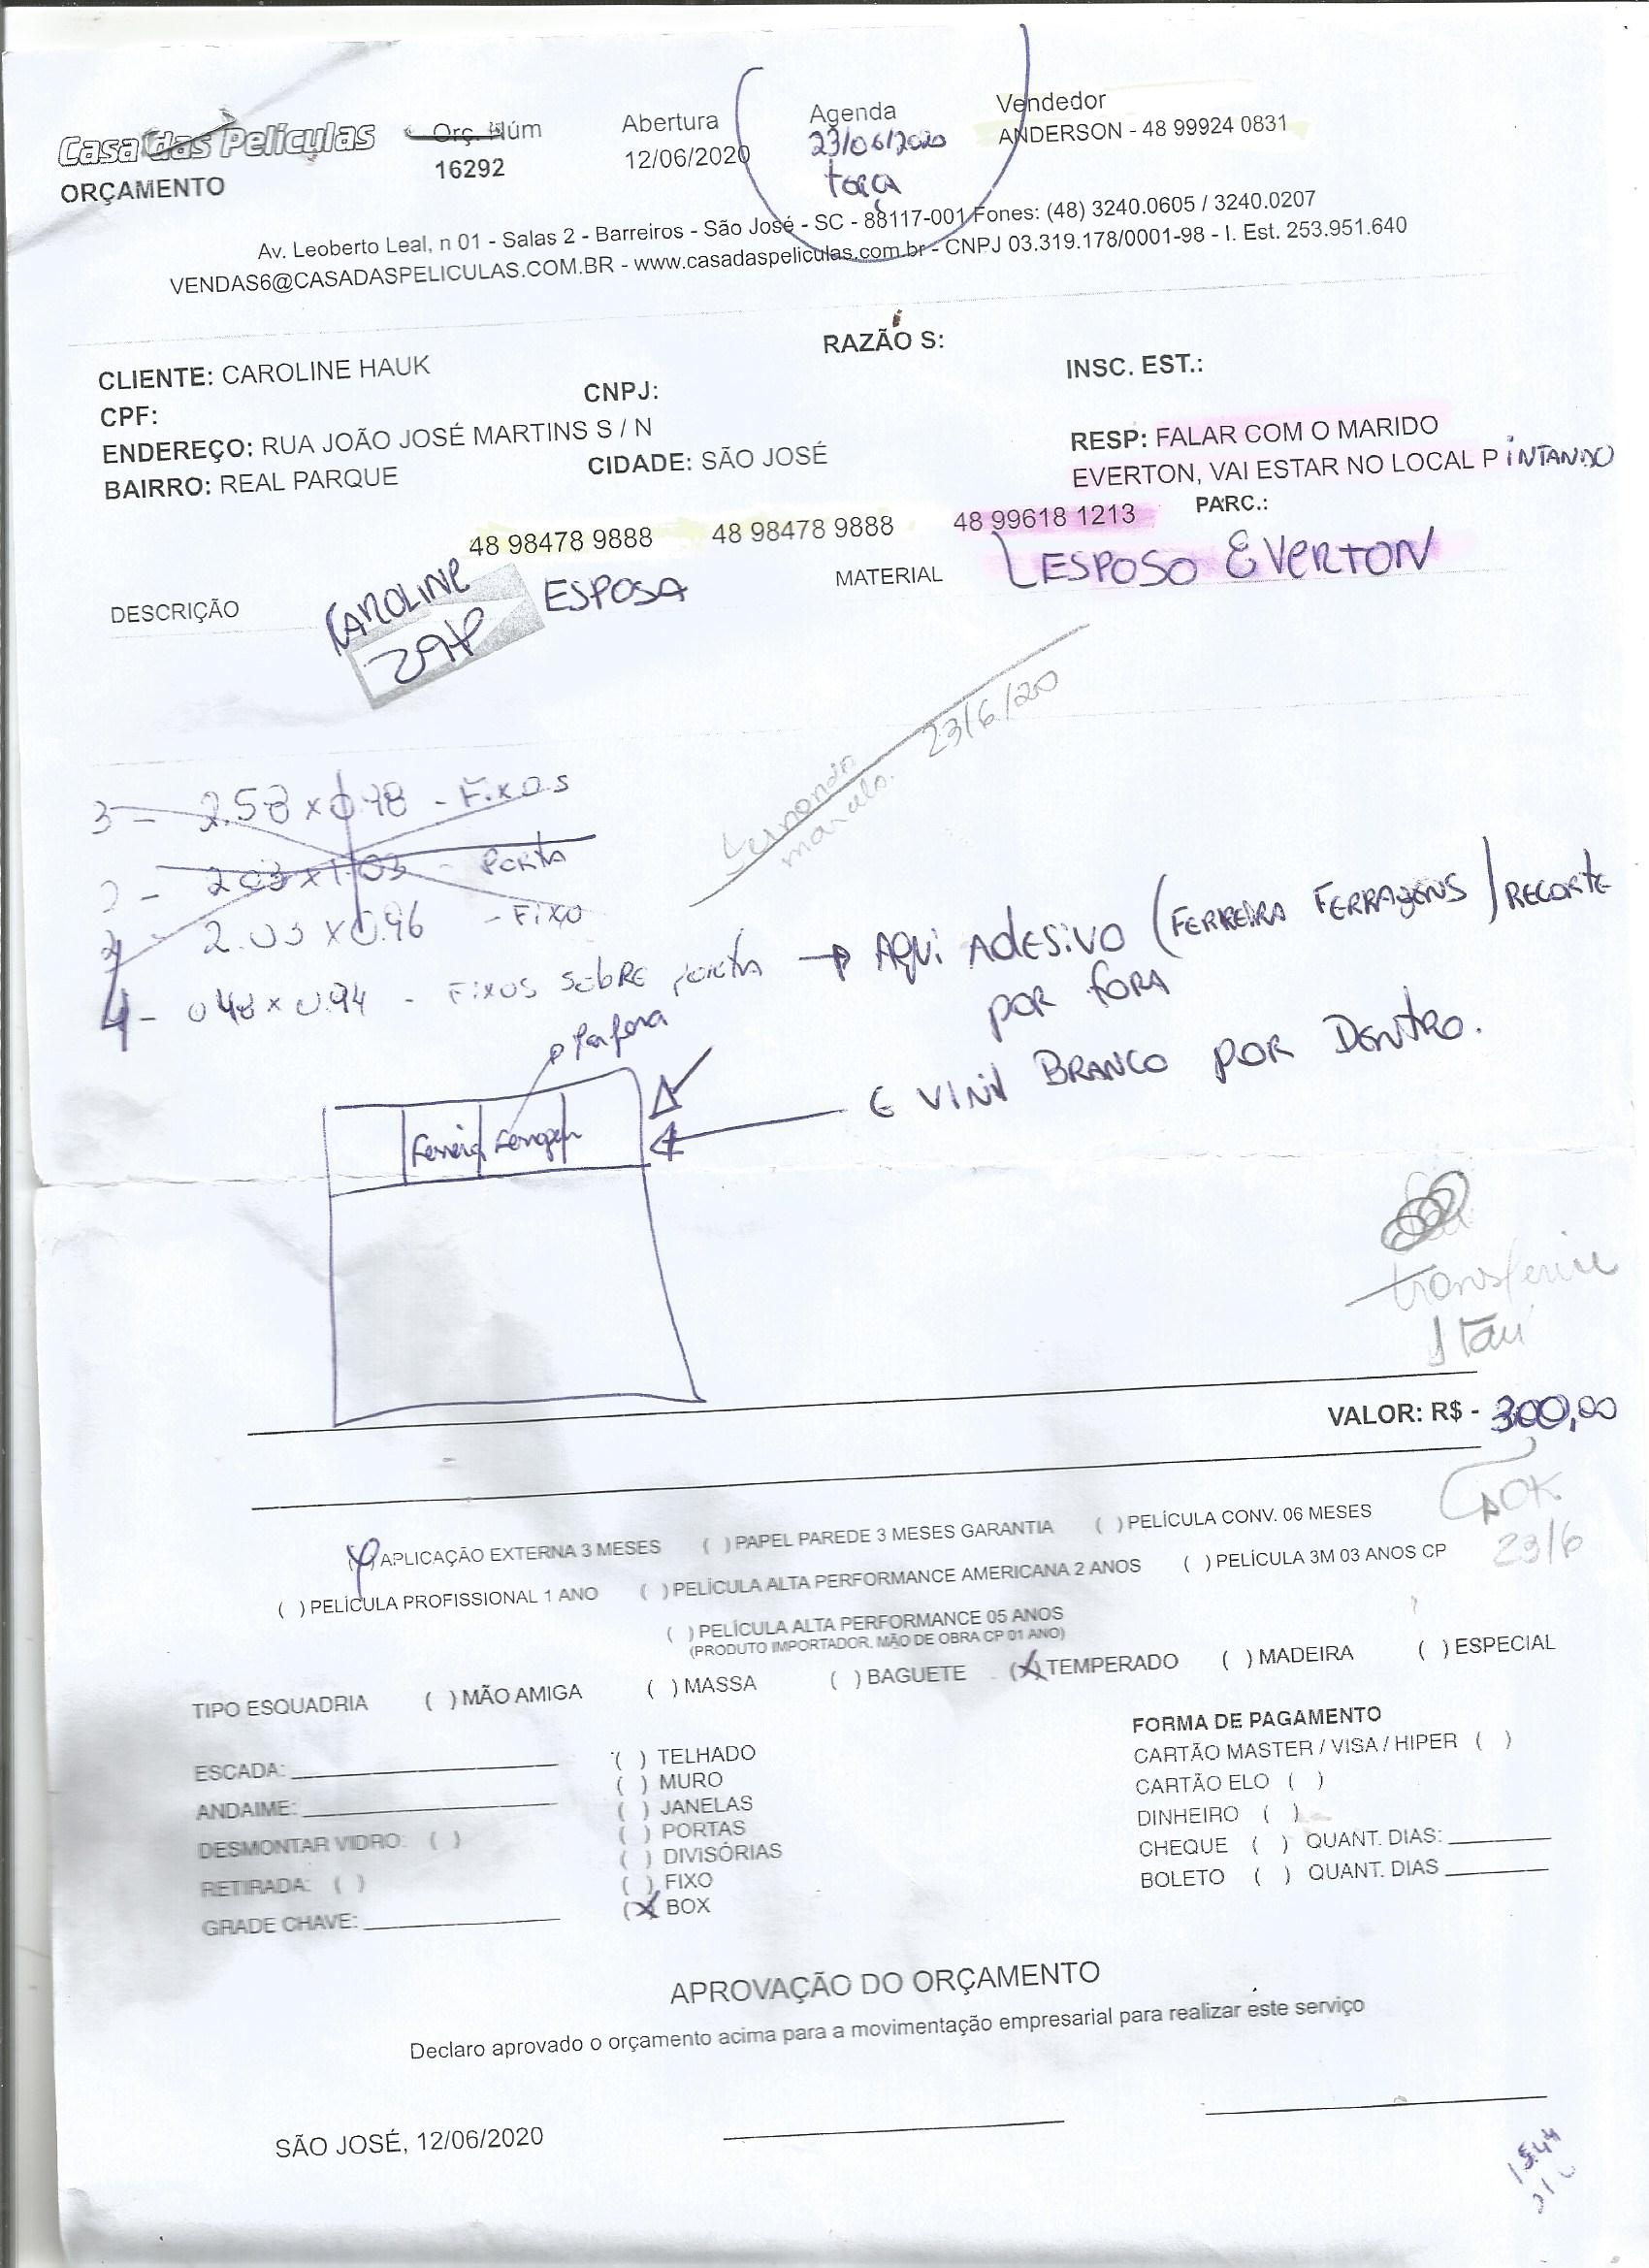 Casa das Películas
ORÇAMENTO
Orç. Núm
16292
Abertura
12/06/2020
Agenda
23/06/2020
terça
Vendedor
ANDERSON - 48 99924 0831
Av. Leoberto Leal, n 01 - Salas 2 - Barreiros - São José - SC - 88117-001 Fones: (48) 3240.0605 / 3240.0207
VENDAS6@CASADASPELICULAS.COM.BR - www.casadaspeliculas.com.br - CNPJ 03.319.178/0001-98 - I. Est. 253.951.640
CLIENTE: CAROLINE HAUK
RAZÃO S:
CPF:
CNPJ:
INSC. EST.:
ENDEREÇO: RUA JOÃO JOSÉ MARTINS S / N
BAIRRO: REAL PARQUE
CIDADE: SÃO JOSÉ
RESP: FALAR COM O MARIDO
EVERTON, VAI ESTAR NO LOCAL PINTANDO
48 98478 9888 48 98478 9888 48 99618 1213 PARC.:
DESCRIÇÃO
CAROLINE
ZAP
ESPOSA
MATERIAL
ESPOSO EVERTON
23/6/20
3 - 2.58 x 0.48 - Fixos
2.03 x 1.03 - PORTA
2.03 x 0.96 - FIXO
4 - 048 x 0.94 - FIXOS SOBRE porta → AQUI ADESIVO (FERREIRA FERRAGENS / RECORTE
POR FORA
E VINIL BRANCO POR DENTRO.
Por fora
Ferreira Ferragens
Itaú
VALOR: R$ - 300,00
OK
23/6
( ) APLICAÇÃO EXTERNA 3 MESES ( ) PAPEL PAREDE 3 MESES GARANTIA ( ) PELÍCULA CONV. 06 MESES
( ) PELÍCULA PROFISSIONAL 1 ANO ( ) PELÍCULA ALTA PERFORMANCE AMERICANA 2 ANOS ( ) PELÍCULA 3M 03 ANOS CP
( ) PELÍCULA ALTA PERFORMANCE 05 ANOS
(PRODUTO IMPORTADOR, MÃO DE OBRA CP 01 ANO)
TIPO ESQUADRIA ( ) MÃO AMIGA ( ) MASSA ( ) BAGUETE (X) TEMPERADO ( ) MADEIRA ( ) ESPECIAL
ESCADA:
ANDAIME:
DESMONTAR VIDRO: ( )
RETIRADA: ( )
GRADE CHAVE:
( ) TELHADO
( ) MURO
( ) JANELAS
( ) PORTAS
( ) DIVISÓRIAS
( ) FIXO
(X) BOX
FORMA DE PAGAMENTO
CARTÃO MASTER / VISA / HIPER ( )
CARTÃO ELO ( )
DINHEIRO ( )
CHEQUE ( ) QUANT. DIAS:
BOLETO ( ) QUANT. DIAS
APROVAÇÃO DO ORÇAMENTO
Declaro aprovado o orçamento acima para a movimentação empresarial para realizar este serviço
SÃO JOSÉ, 12/06/2020